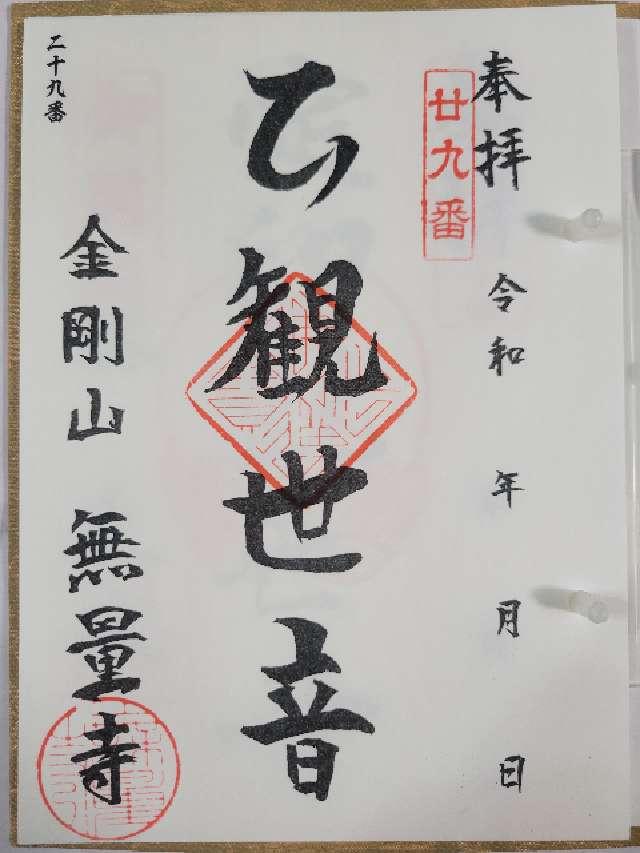 奉拝 令和 年 月 日
廿九番
観世音
二十九番
金剛山 無量寺